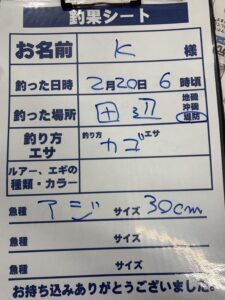 釣果シート
お名前 K 様
釣った日時 2月20日 6時頃
釣った場所 田辺 地磯 沖磯 堤防
釣り方 エサ 釣り方 カゴ エサ
ルアー、エギの種類・カラー
魚種 アジ サイズ 30cm
魚種 サイズ
魚種 サイズ
お持ち込みありがとうございました。